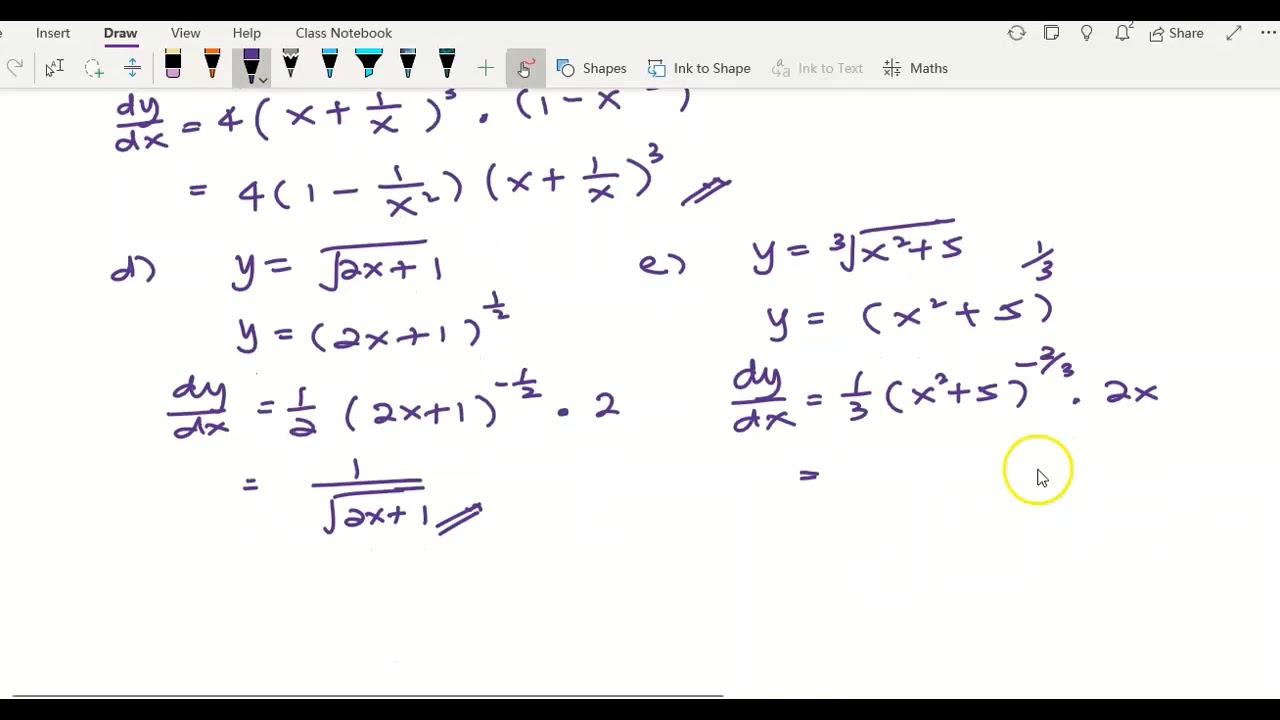 Insert Draw View Help Class Notebook 2 Share
Shapes Ink to Shape Ink to Text Maths
dy/dx = 4(x + 1/x)³ . (1 - x⁻
= 4(1 - 1/x²) (x + 1/x)³
d) y = √(2x + 1)
y = (2x + 1)^(1/2)
dy/dx = 1/2 (2x+1)^(-1/2) . 2
= 1/√(2x + 1)
e) y = ³√(x² + 5)
y = (x² + 5)^(1/3)
dy/dx = 1/3 (x²+5)^(-2/3) . 2x
=